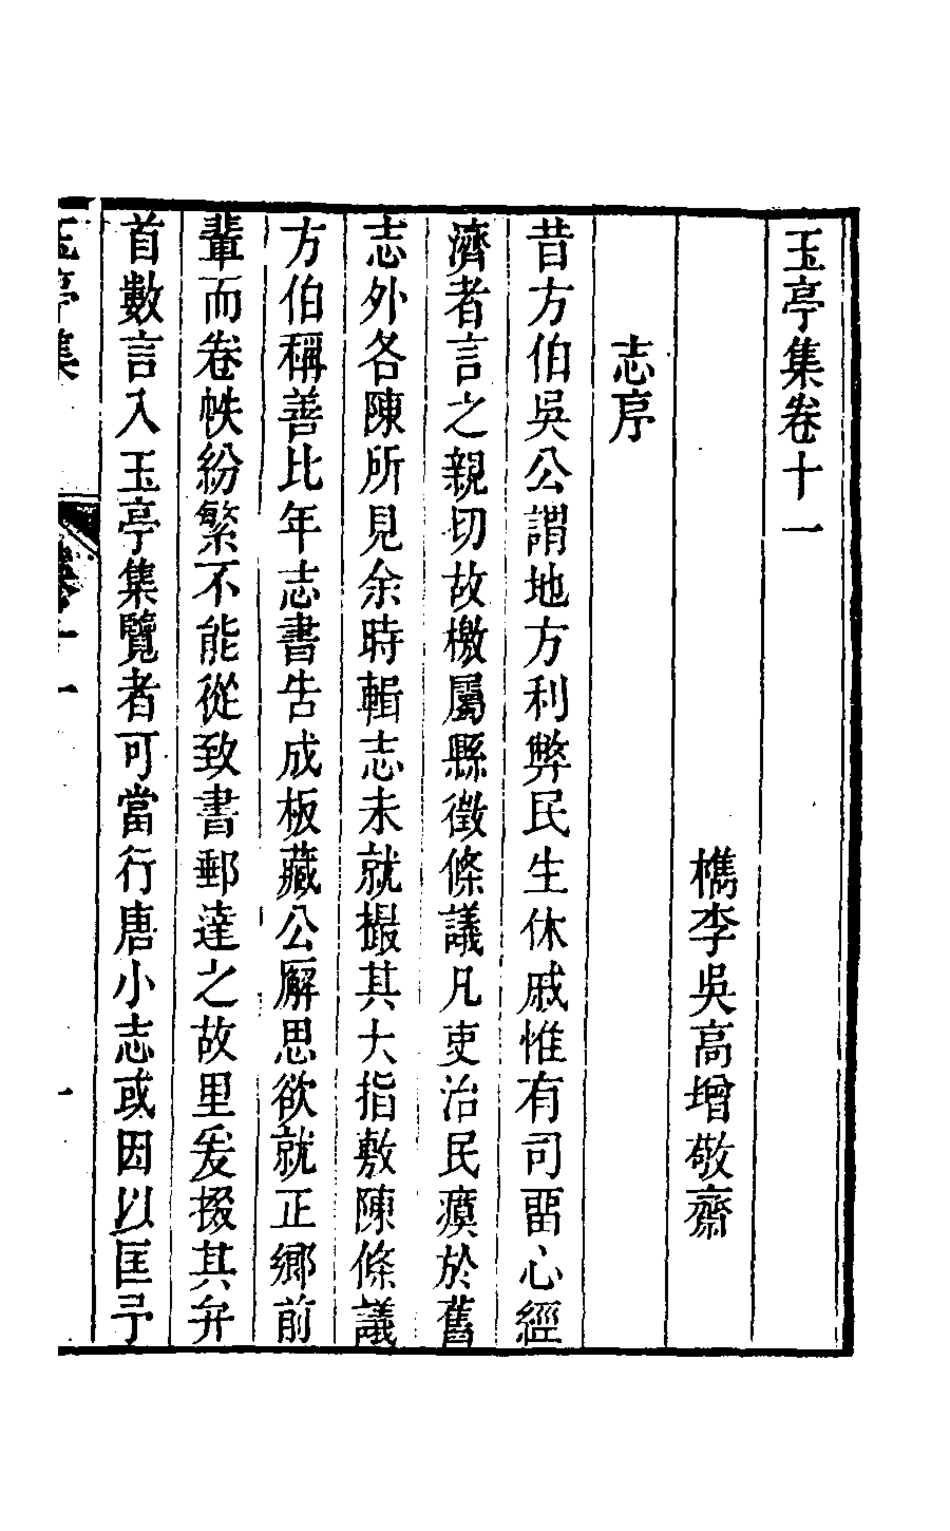 玉亭集卷十一
檇李吳高增敬齋
志序
昔方伯吳公謂地方利弊民生休戚惟有司畱心經
濟者言之親切故檄屬縣徵條議凡吏治民瘼於舊
志外各陳所見余時輯志未就撮其大指敷陳條議
方伯稱善比年志書告成板藏公廨思欲就正鄉前
輩而卷帙紛繁不能從致書郵達之故里爰掇其弁
首數言入玉亭集覽者可當行唐小志或因以匡予
玉亭集 卷十一 一